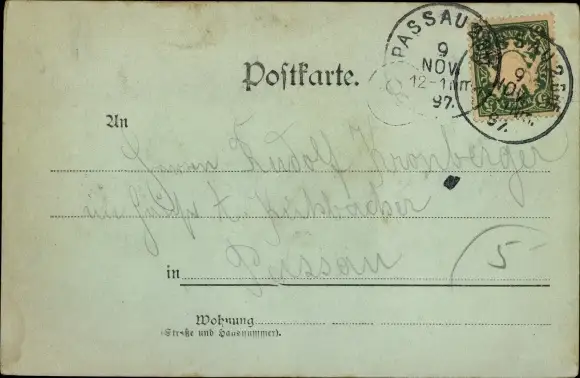 PASSAU 2
9
NOV.
12-1 Nm.
97.
PASSAU 2
9
NOV.
97.
Postkarte.
An
Herrn Rudolf Kronberger
5
in Passau
Wohnung
(Straße und Hausnummer).